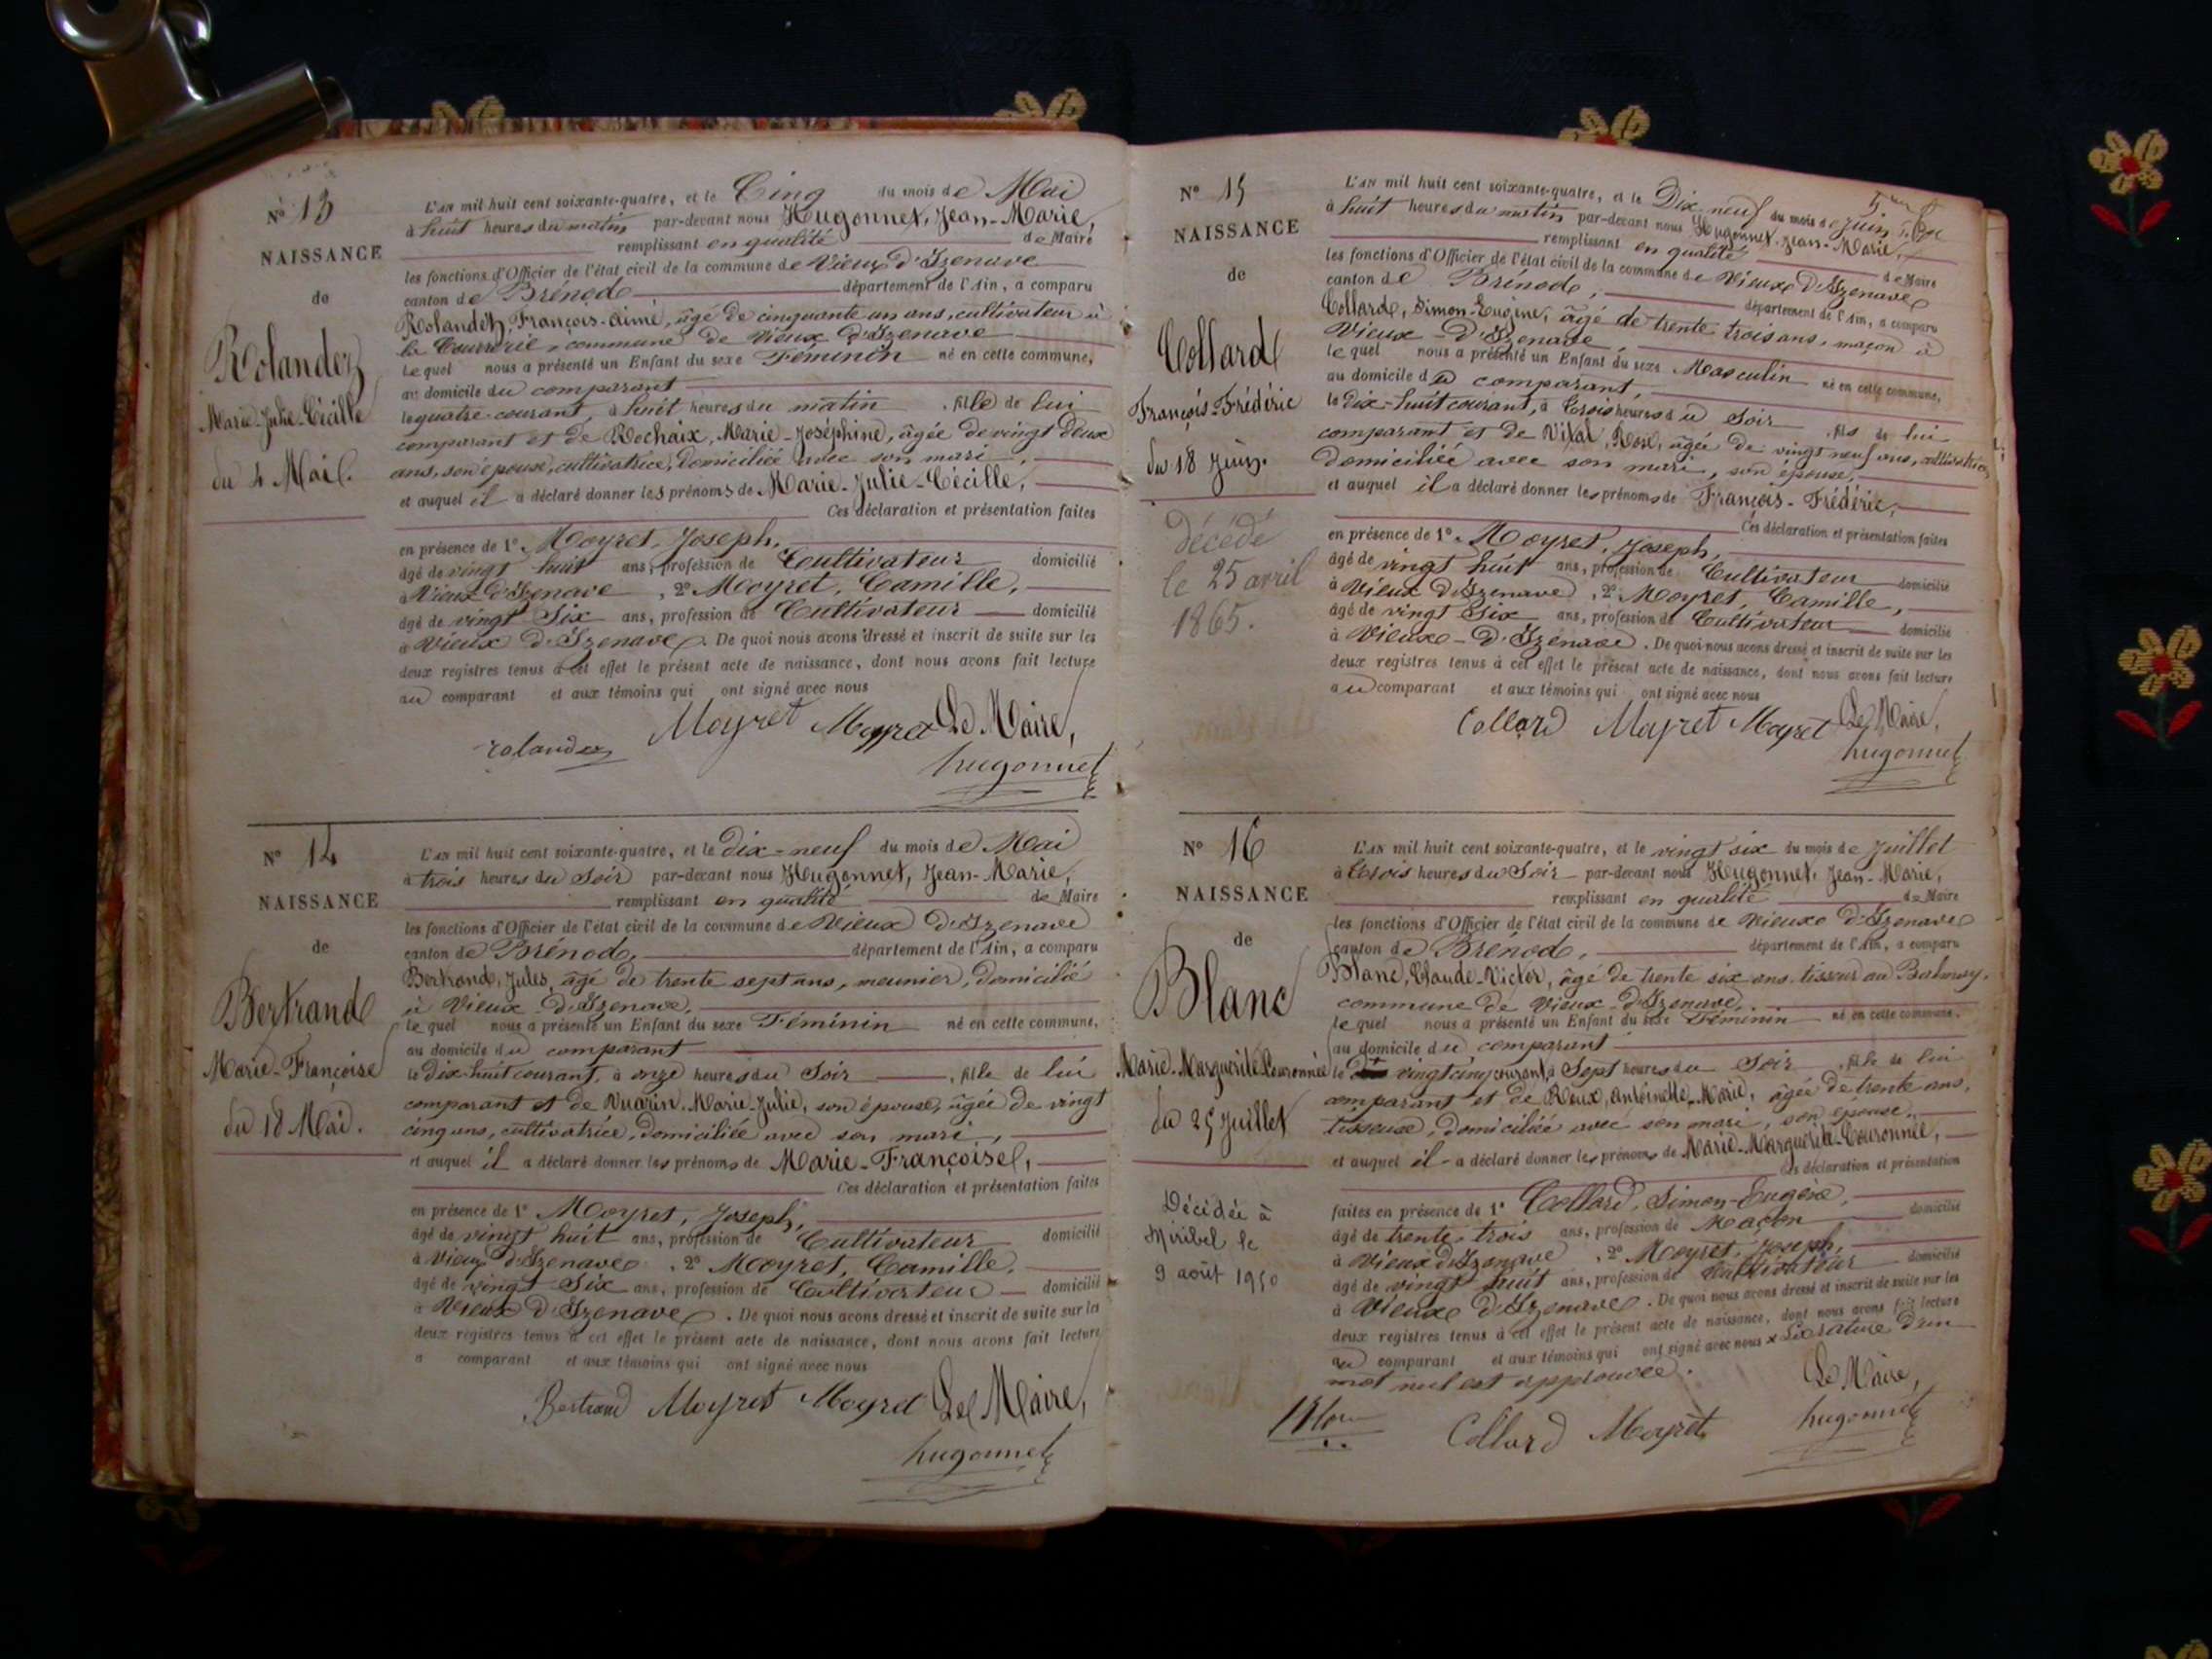 N° 13
NAISSANCE
de
Rolandez
Marie-Julie-Cécille
du 4 Mai.
L'AN mil huit cent soixante-quatre, et le Cinq du mois de Mai
à huit heures du matin par-devant nous Hugonnet, Jean-Marie,
remplissant en qualité de Maire
les fonctions d'Officier de l'état civil de la commune de Vieux d'Izenave
canton de Brénod département de l'Ain, a comparu
Rolandez, François-Aimé, âgé de cinquante un ans, cultivateur à
la Courrerie, commune de Vieux d'Izenave
lequel nous a présenté un Enfant du sexe Féminin né en cette commune,
au domicile du comparant
le quatre courant, à huit heures du matin, fille de lui
comparant et de Rochaix, Marie-Joséphine, âgée de vingt deux
ans, son épouse, cultivatrice, domiciliée avec son mari,
et auquel il a déclaré donner les prénoms de Marie-Julie-Cécille,
Ces déclaration et présentation faites
en présence de 1° Moyret, Joseph,
âgé de vingt huit ans, profession de Cultivateur domicilié
à Vieux d'Izenave, 2° Moyret, Camille,
âgé de vingt Six ans, profession de Cultivateur domicilié
à Vieux d'Izenave. De quoi nous avons dressé et inscrit de suite sur les
deux registres tenus à cet effet le présent acte de naissance, dont nous avons fait lecture
au comparant et aux témoins qui ont signé avec nous
rolandez Moyret Moyret Le Maire,
hugonnet
N° 14
NAISSANCE
de
Bertrand
Marie-Françoise
du 18 Mai.
L'AN mil huit cent soixante-quatre, et le dix-neuf du mois de Mai
à trois heures du Soir par-devant nous Hugonnet, Jean-Marie,
remplissant en qualité de Maire
les fonctions d'Officier de l'état civil de la commune de Vieux D'Izenave
canton de Brénod, département de l'Ain, a comparu
Bertrand, Jules, âgé de trente sept ans, meunier, domicilié
à Vieux D'Izenave,
lequel nous a présenté un Enfant du sexe Féminin né en cette commune,
au domicile du comparant
le dix-huit courant, à onze heures du Soir, fille de lui
comparant et de Vuarin, Marie-Julie, son épouse, âgée de vingt
cinq ans, cultivatrice, domiciliée avec son mari,
et auquel il a déclaré donner les prénoms de Marie-Françoise,
Ces déclaration et présentation faites
en présence de 1° Moyret, Joseph,
âgé de vingt huit ans, profession de Cultivateur domicilié
à Vieux d'Izenave, 2° Moyret, Camille,
âgé de vingt Six ans, profession de Cultivateur domicilié
à Vieux d'Izenave. De quoi nous avons dressé et inscrit de suite sur les
deux registres tenus à cet effet le présent acte de naissance, dont nous avons fait lecture
a comparant et aux témoins qui ont signé avec nous
Bertrand Moyret Moyret Le Maire,
hugonnet
N° 15
NAISSANCE
de
Collard
François-Frédéric
du 18 Juin.
Décédé
le 25 avril
1865.
L'AN mil huit cent soixante-quatre, et le Dix-neuf du mois de Juin,
à huit heures du matin par-devant nous Hugonnet, Jean-Marie,
remplissant en qualité de Maire
les fonctions d'Officier de l'état civil de la commune de Vieux D'Izenave
canton de Brénod, département de l'Ain, a comparu
Collard, Simon-Eugène, âgé de trente-trois ans, maçon à
Vieux-D'Izenave,
lequel nous a présenté un Enfant du sexe Masculin né en cette commune,
au domicile du comparant,
le Dix-huit courant, à Trois heures du Soir, fils de lui
comparant et de Vital, Rose, âgée de vingt neuf ans, cultivatrice,
domiciliée avec son mari, son épouse,
et auquel il a déclaré donner les prénoms de François-Frédéric,
Ces déclaration et présentation faites
en présence de 1° Moyret, Joseph,
âgé de vingt huit ans, profession de Cultivateur domicilié
à Vieux D'Izenave, 2° Moyret, Camille,
âgé de vingt Six ans, profession de Cultivateur domicilié
à Vieux-D'Izenave. De quoi nous avons dressé et inscrit de suite sur les
deux registres tenus à cet effet le présent acte de naissance, dont nous avons fait lecture
au comparant et aux témoins qui ont signé avec nous
Collard Moyret Moyret Le Maire,
hugonnet
N° 16
NAISSANCE
de
Blanc
Marie-Marguerite-Couronnée
du 25 Juillet
Décédée à
Miribel le
9 août 1950
L'AN mil huit cent soixante-quatre, et le vingt six du mois de Juillet
à trois heures du Soir par-devant nous Hugonnet, Jean-Marie,
remplissant en qualité de Maire
les fonctions d'Officier de l'état civil de la commune de Vieux D'Izenave
canton de Brénod, département de l'Ain, a comparu
Blanc, Claude-Victor, âgé de trente six ans, tisseur au
commune de Vieux-D'Izenave,
lequel nous a présenté un Enfant du sexe Féminin né en cette commune,
au domicile du comparant
le vingt cinq courant, à Sept heures du Soir, fille de lui
comparant et de Roux, Antoinette-Marie, âgée de trente ans,
tisseuse, domiciliée avec son mari, son épouse,
et auquel il a déclaré donner les prénoms de Marie-Marguerite-Couronnée,
Ces déclaration et présentation
faites en présence de 1° Collard, Simon-Eugène,
âgé de trente-trois ans, profession de Maçon domicilié
à Vieux d'Izenave, 2° Moyret, Joseph,
âgé de vingt huit ans, profession de Cultivateur domicilié
à Vieux D'Izenave. De quoi nous avons dressé et inscrit de suite sur les
deux registres tenus à cet effet le présent acte de naissance, dont nous avons fait lecture
au comparant et aux témoins qui ont signé avec nous x Six rature d'un
mot nul est approuvée.
Le Maire,
Collard Moyret hugonnet